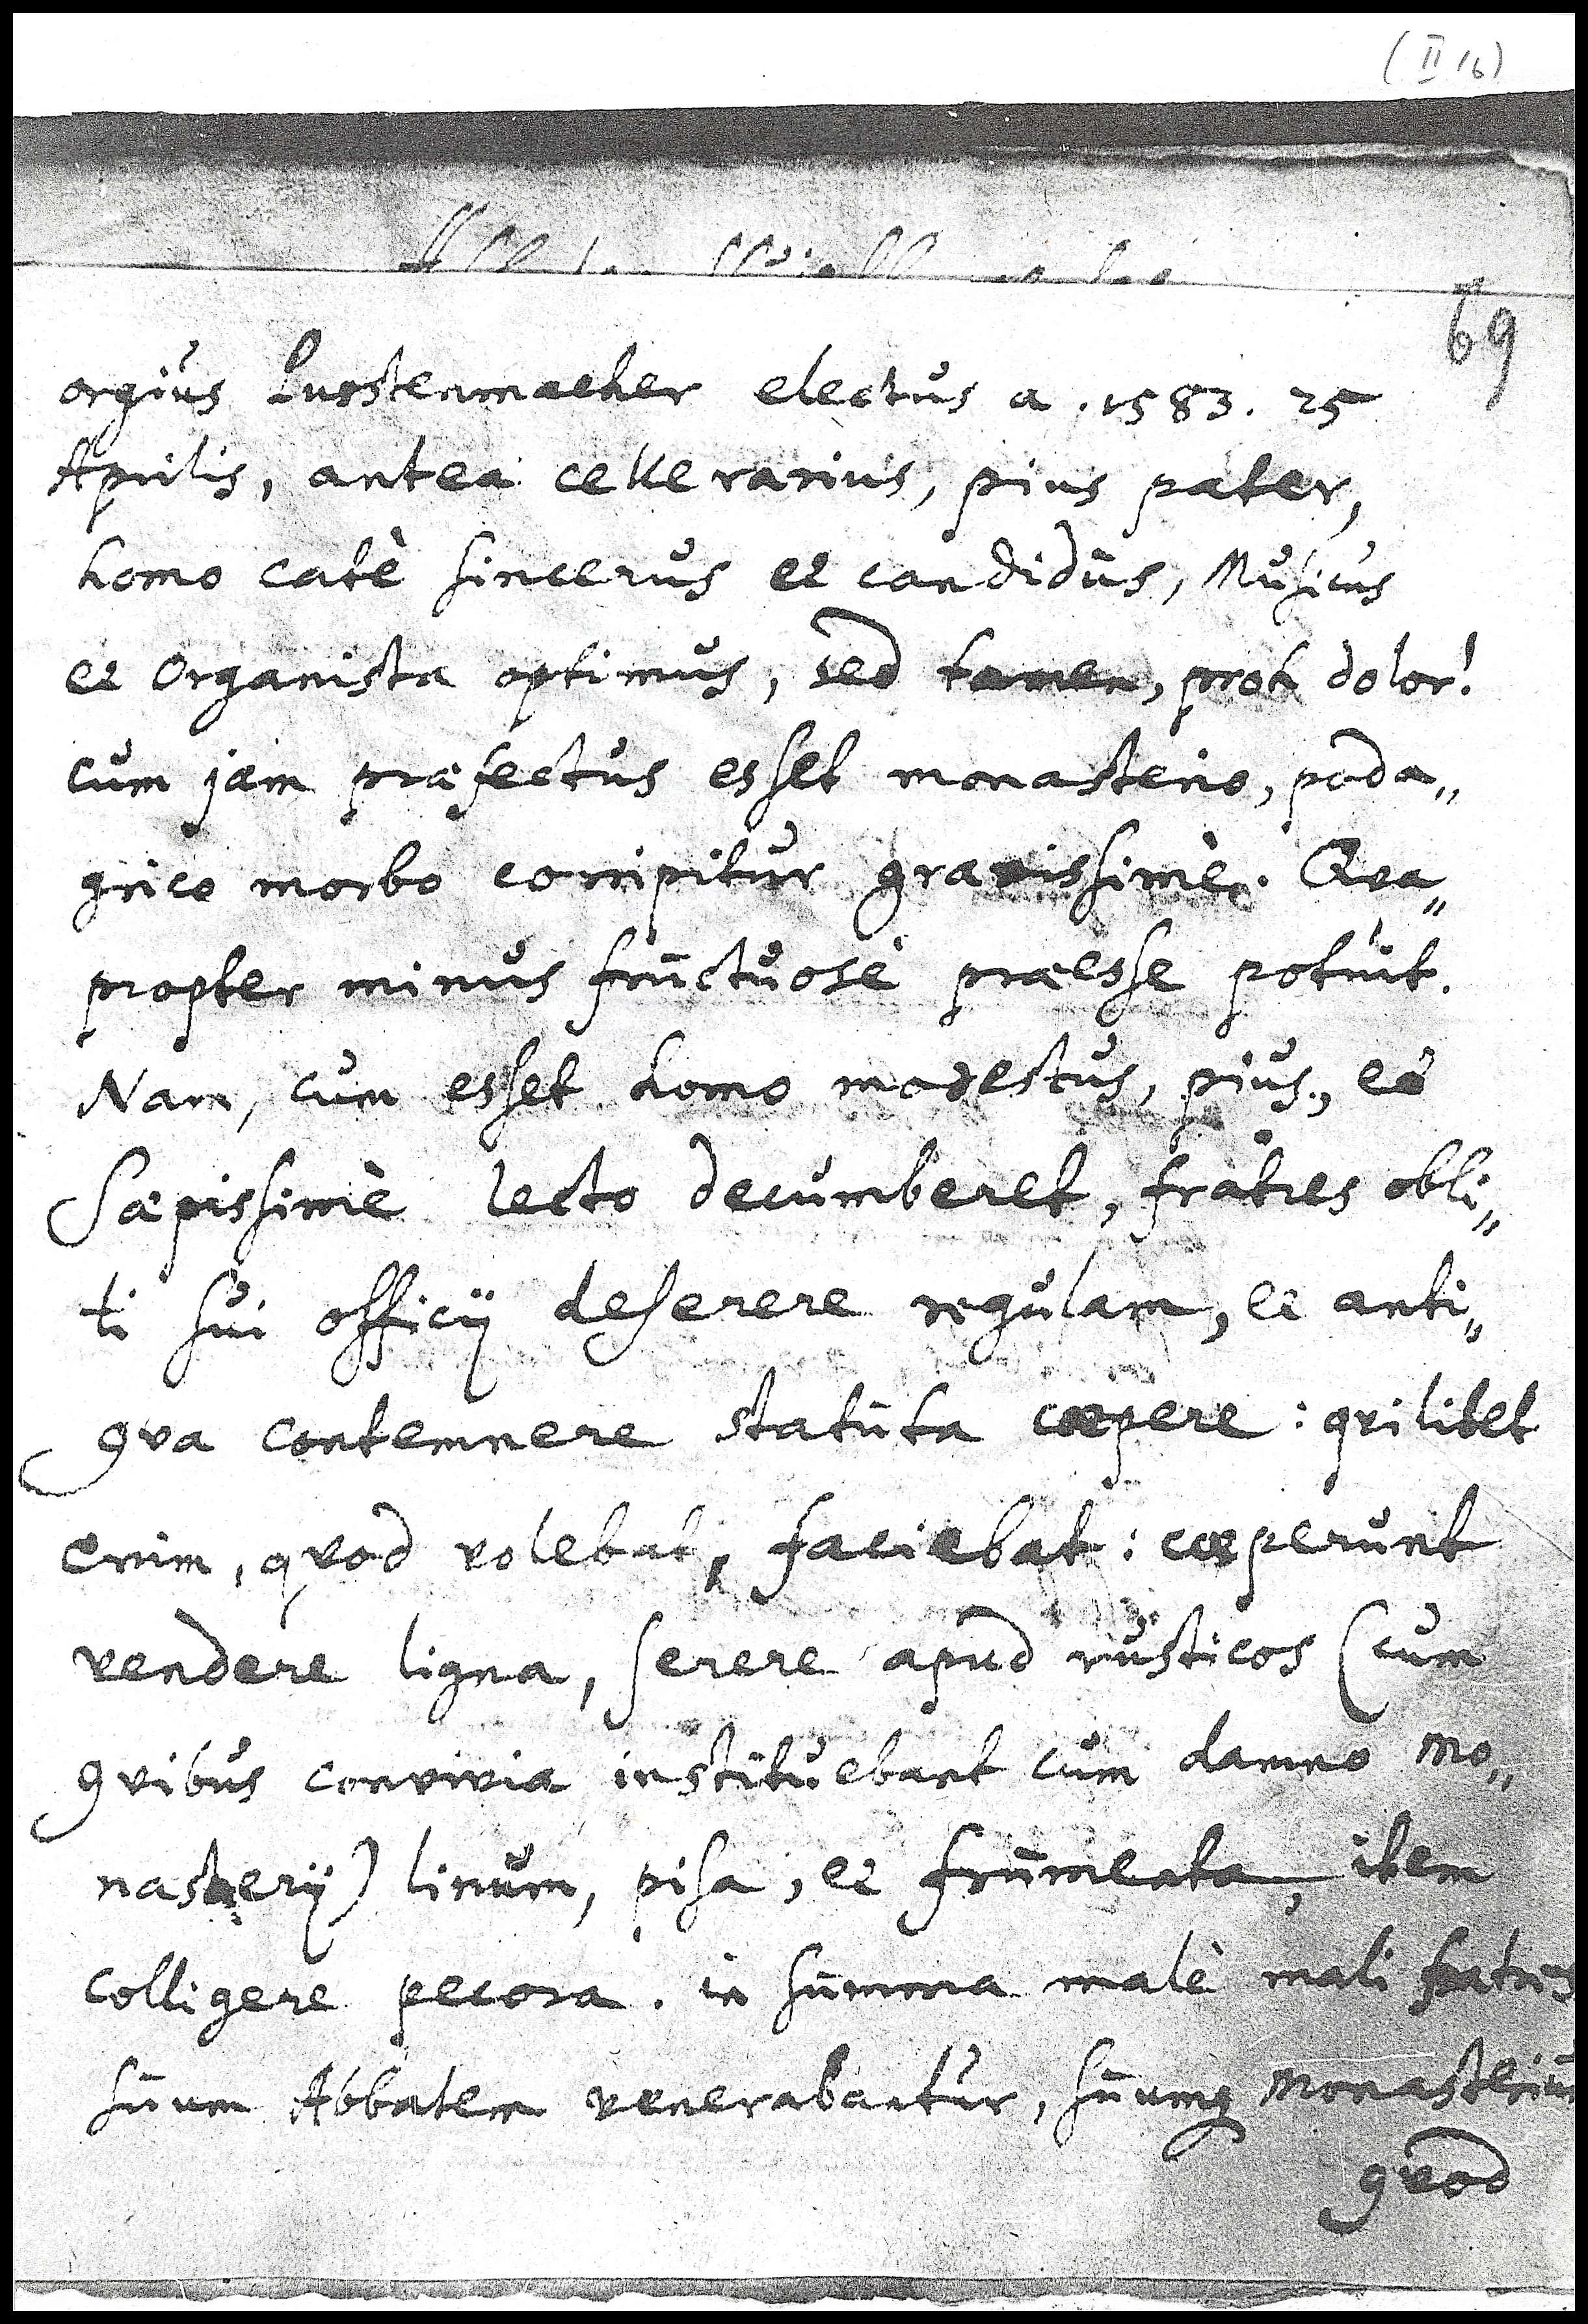 (II 16)
69
orgius Lusstenmacher electus a. 1583. 25
Aprilis, antea cellerarius, pius pater,
homo catè sincerus et candidus, Musicus
et Organista optimus, sed tamen, proh dolor!
cum jam præfectus esset monasterio, poda„
grico morbo corripitur gravissimè. Qva„
propter minus fructuosè præesse potuit.
Nam, cum esset homo modestus, pius, et
Sæpissimè lecto decumberet, fratres obli„
ti sui officij deserere regulam, et anti„
qva contemnere statuta cœpere: qvilibet
enim, qvod volebat, faciebat: cœperunt
vendere ligna, serere apud rusticos (cum
qvibus convivia instituebant cum damno Mo„
nasterij) linum, pisa, et frumenta, item
colligere pecora. in summa malè mali fratres
suum Abbatem venerabantur, suumq Monasterium
qvod